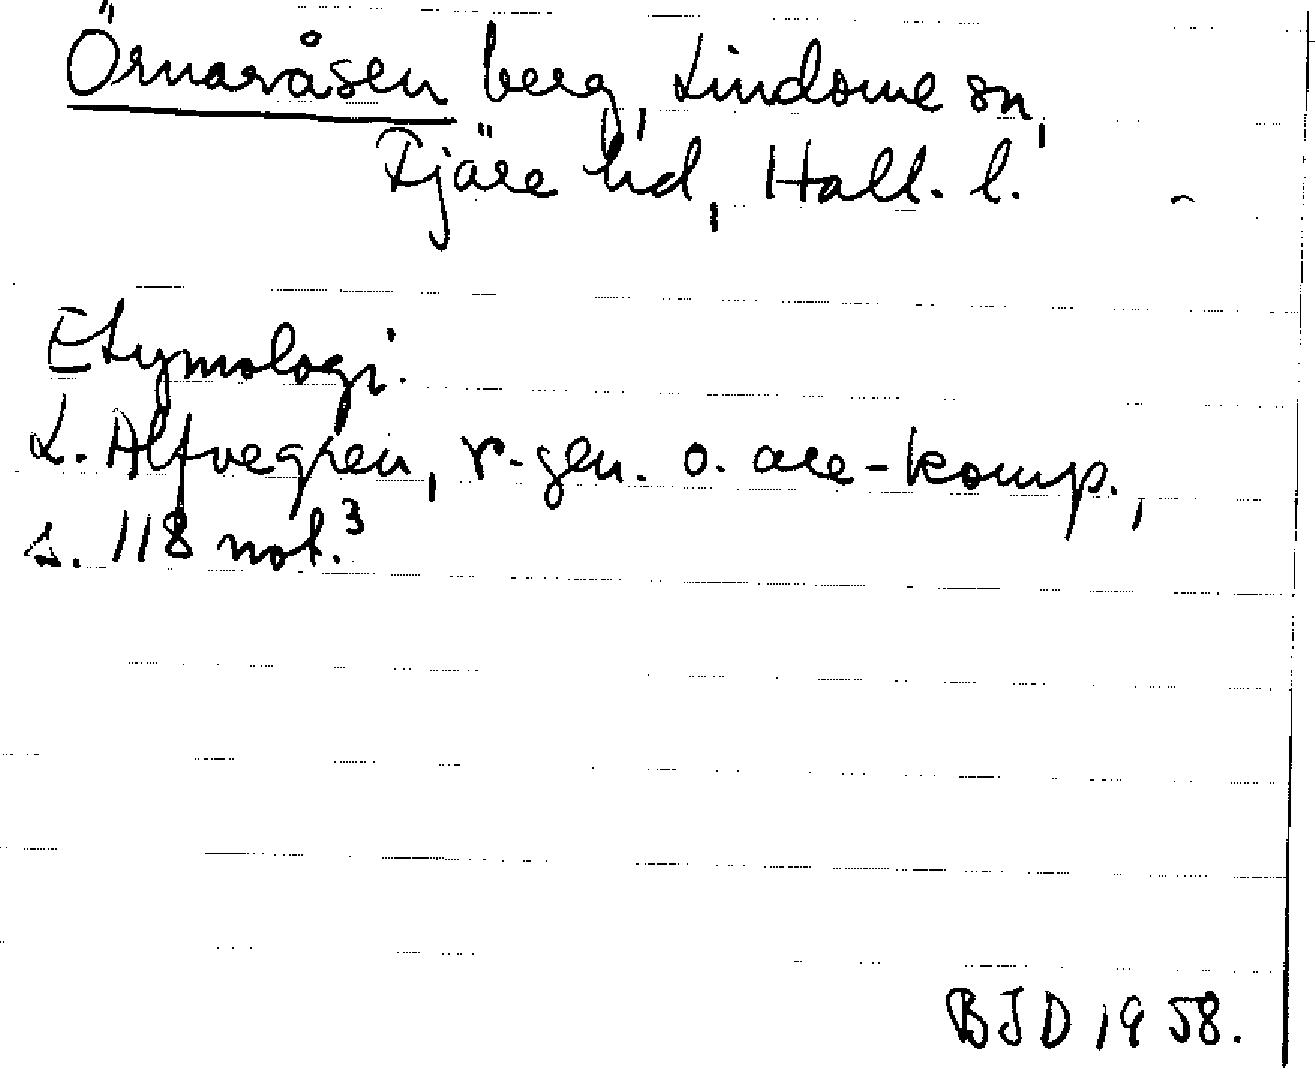 Örnaråsen berg, Lindome sn,
Fjäre hd, Hall. l.
Etymologi.
L. Alfvegren, r-gen. o. are-komp.,
s. 118 not.³
BJD 1958.